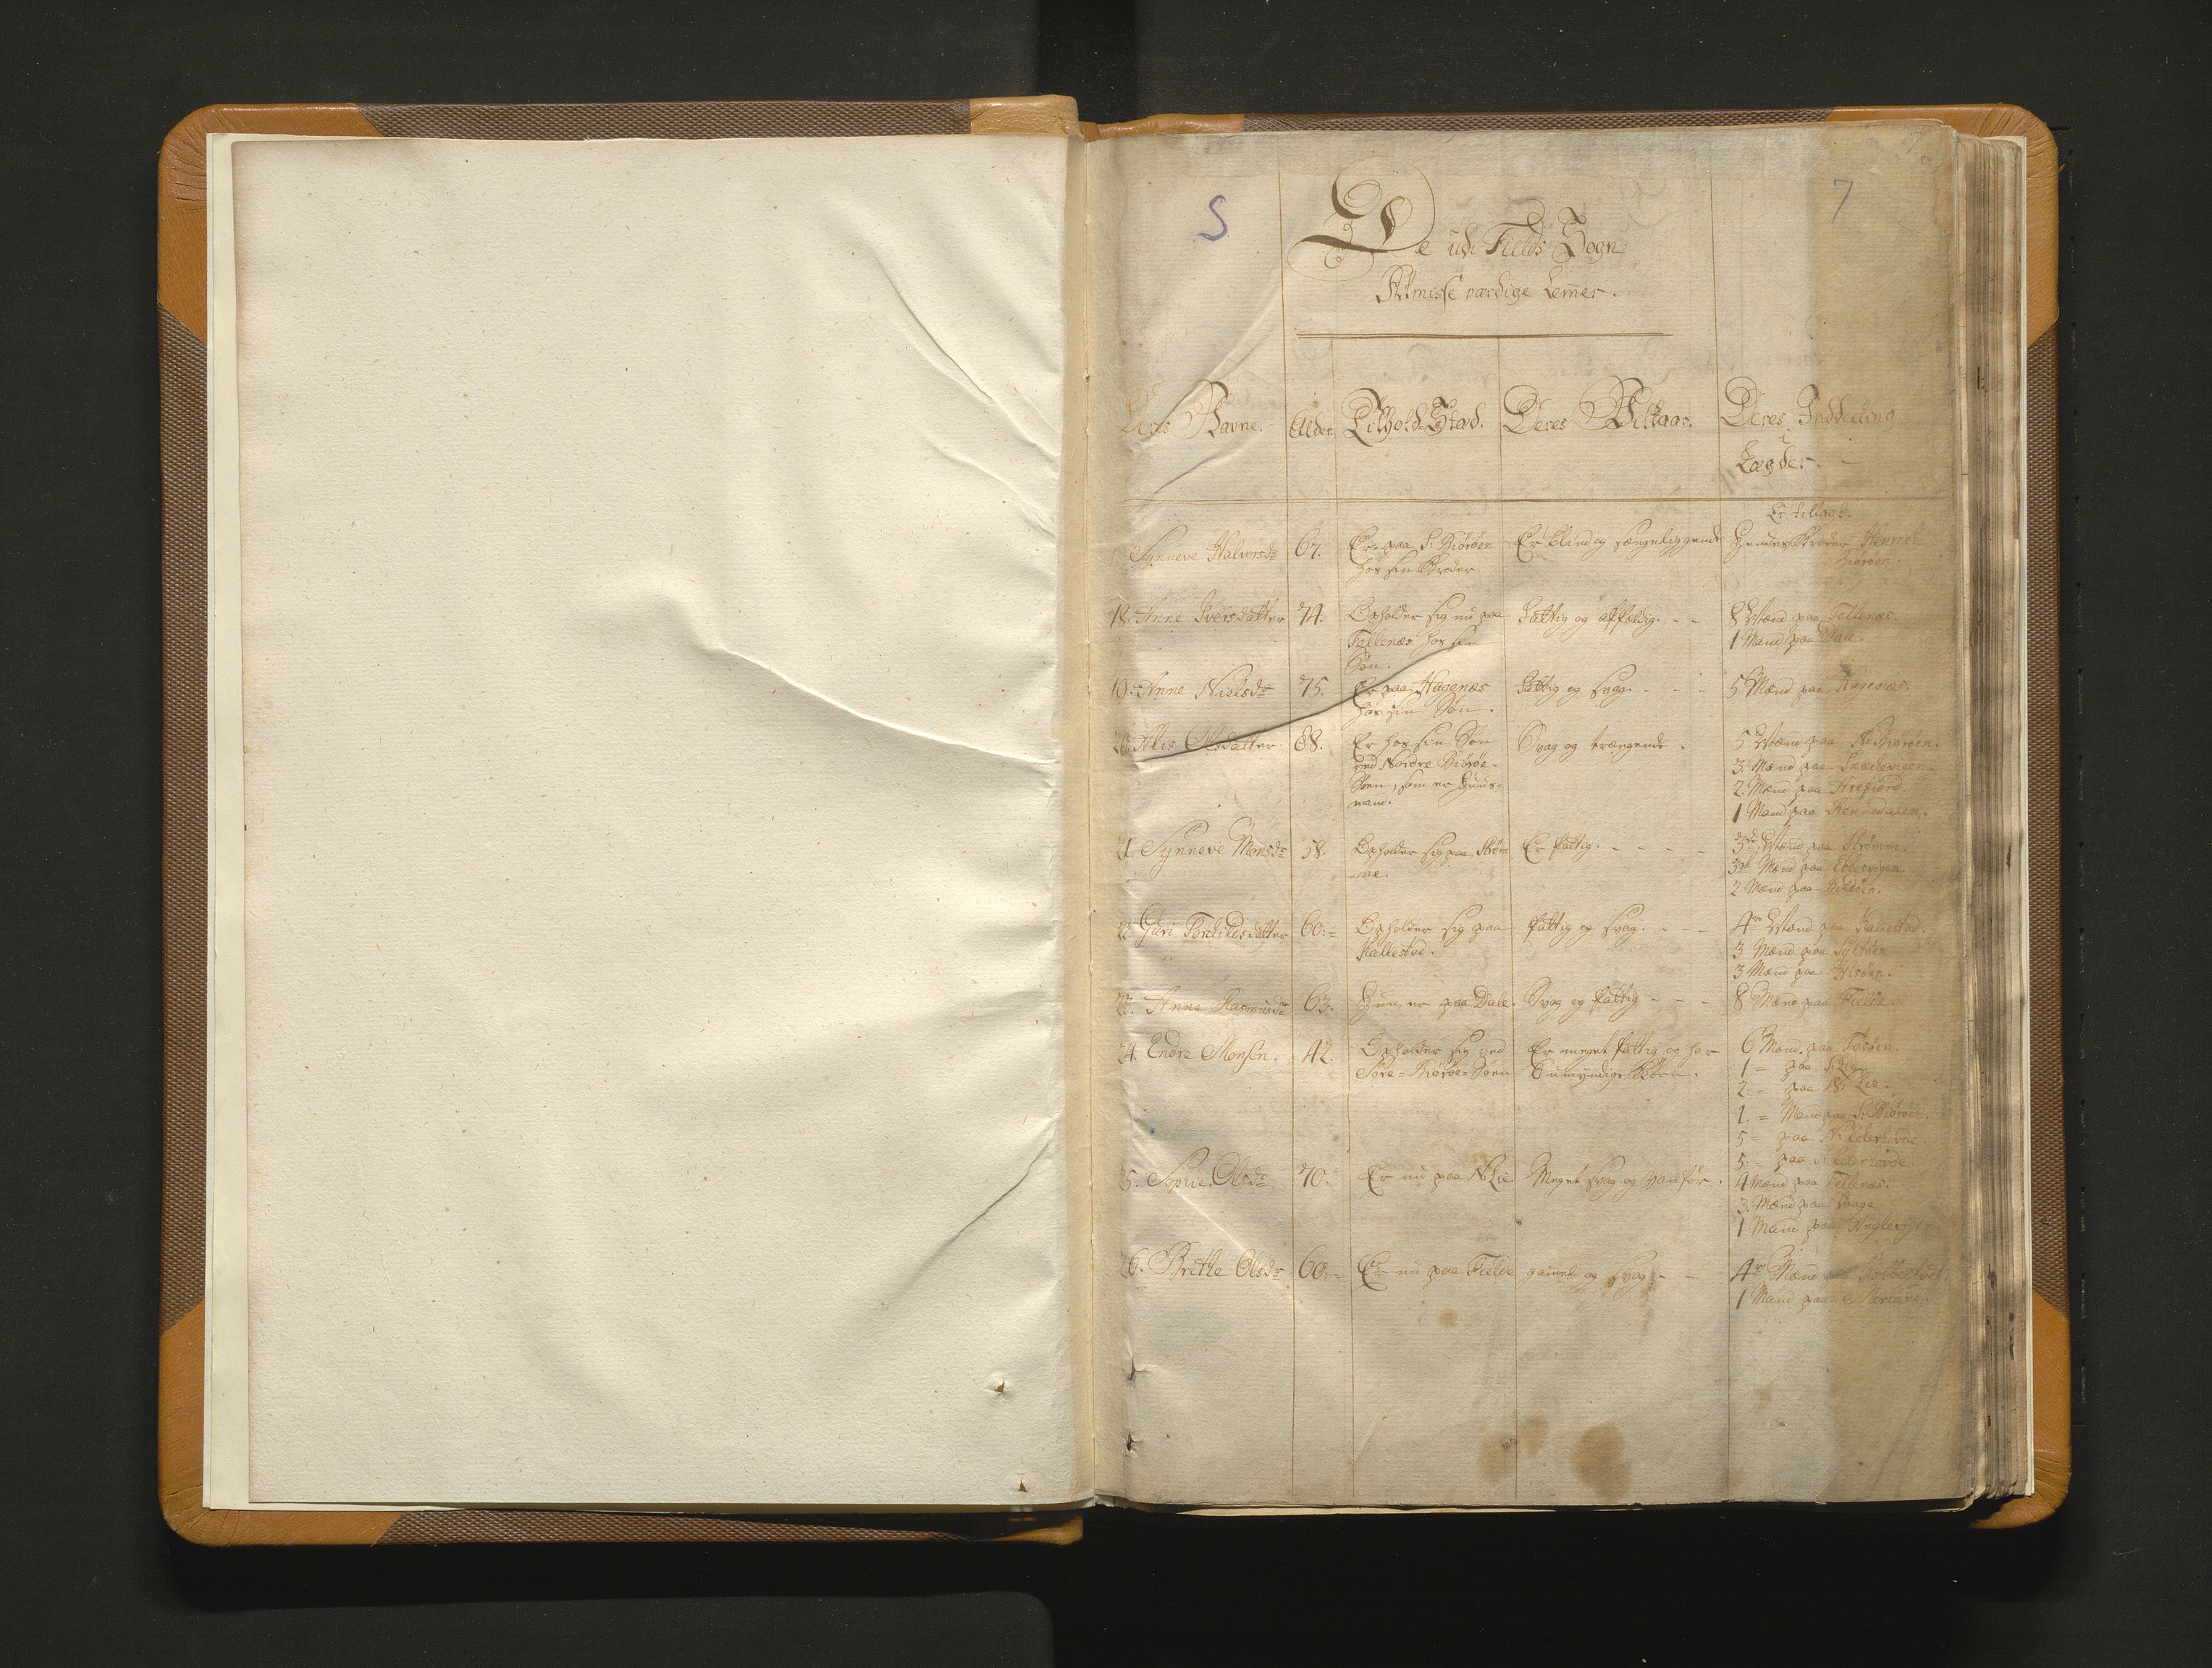 S
7
De udi Fields Sogn
Almisse værdige Lem̄er.
Deres Navne.
Alder.
Tilhold Stæd.
Deres Vilkaar.
Deres Inddeeling
i
Lægder.
Er tillagt.
Synneve Halversdr
67.
Er paa S: Biørøen
hos sin Broder.
Er Blind og sængeliggende
Hendes Broder Henrich
Biørøen.
18. Anne Iversdatter
74.
Opholder sig nu paa
Tellenæs hos sin
Søn.
Fattig og affældig. - -
8 Mænd paa Tellenæs.
1 Mand paa Dale.
19. Anne Nielsdr
75.
Er paa Hagenæs
hos sin Søn.
Fattig og svag. - - -
5 Mænd paa Hagenæs.
20. Alis Olsdatter
88.
Er hos sin Søn
ved Nordre Biørøe-
Søen, som er Huus-
mand.
Svag og trængende.
5 Mænd paa N: Biørøen.
3. Mænd paa
2. Mænd paa
1 Mand paa
21. Synneve Monsdr
58.
Opholder sig paa Strøm
-me.
Er fattig. - - - -
3de Mænd paa Strømme.
3de Mænd paa Ebbesvigen.
2 Mænd paa
22. Guri Torkildsdatter
60.-
Opholder sig paa
Kallestad.
Fattig og svag. - - -
4re Mænd paa Kallestad.
3 Mænd paa
3 Mænd paa
23. Anna Rasmusdr
63.
Hun er paa Dale.
Svag og fattig - - -
8 Mænd paa Fielde.
24. Endre Monsen.
42.
Opholder sig ved
Søre-Biørøe-Søen
Er meget fattig og har
umyndige Børn.
6 Mænd paa Toføen.
1 - paa S: Lie.
2. - paa N: Lie.
1. = Mand paa S: Biørøen.
5 = paa N:
5. - paa
25. Sophie Olsdr
70.
Er nu paa N: Lie
Meget svag og vanfør.
4 Mænd paa Tellenæs.
3. Mænd paa Vaage
1 Mand paa
26. Brithe Olsdr
60.-
Er nu paa Fielde
gam̄el og svag. - -
4re Mænd
1 Mand paa